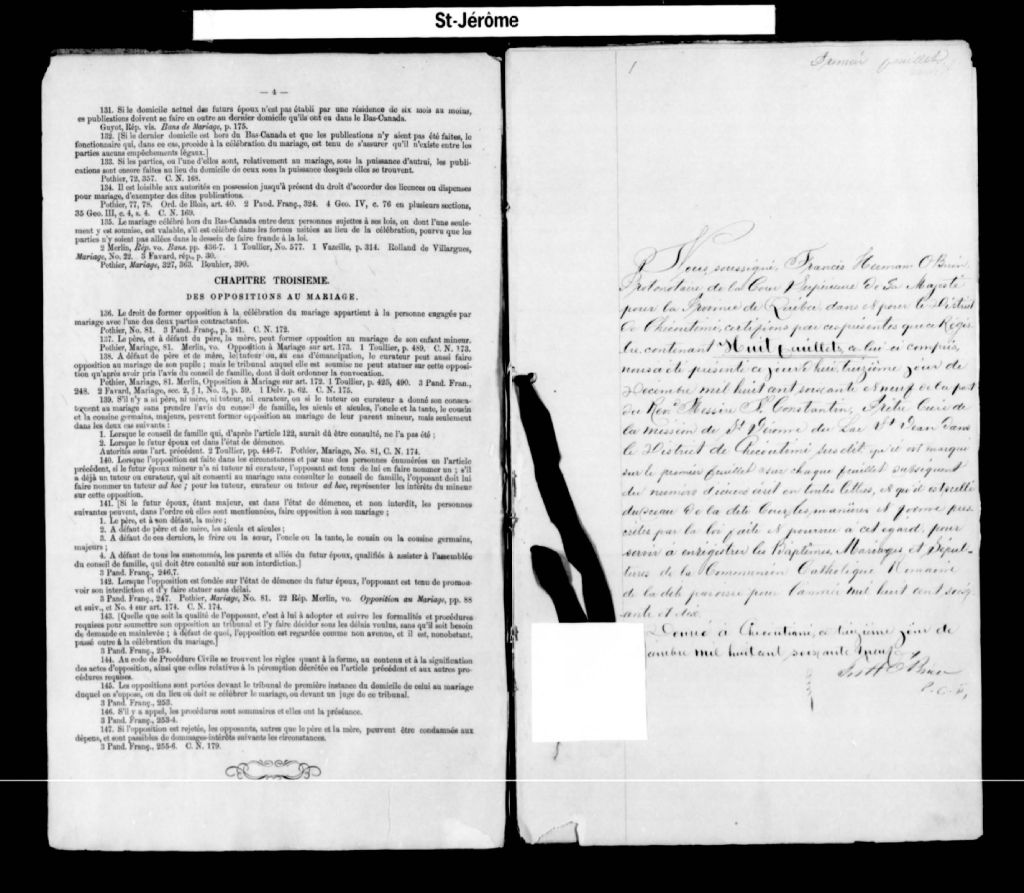 St-Jérôme
— 4 —
131. Si le domicile actuel des futurs époux n'est pas établi par une résidence de six mois au moins,
es publications doivent se faire en outre au dernier domicile qu'ils ont eu dans le Bas-Canada.
Guyot, Rép. vis. Bans de Mariage, p. 175.
132. [Si le dernier domicile est hors du Bas-Canada et que les publications n'y aient pas été faites, le
fonctionnaire qui, dans ce cas, procède à la célébration du mariage, est tenu de s'assurer qu'il n'existe entre les
parties aucuns empêchements légaux.]
133. Si les parties, ou l'une d'elles sont, relativement au mariage, sous la puissance d'autrui, les publi-
cations sont encore faites au lieu du domicile de ceux sous la puissance desquels elles se trouvent.
Pothier, 72, 357. C. N. 168.
134. Il est loisible aux autorités en possession jusqu'à présent du droit d'accorder des licences ou dispenses
pour mariage, d'exempter des dites publications.
Pothier, 77, 78. Ord. de Blois, art. 40. 2 Pand. Franç., 324. 4 Geo. IV, c. 76 en plusieurs sections,
35 Geo. III, c. 4, s. 4. C. N. 169.
135. Le mariage célébré hors du Bas-Canada entre deux personnes sujettes à ses lois, ou dont l'une seule-
ment y est soumise, est valable, s'il est célébré dans les formes usitées au lieu de la célébration, pourvu que les
parties n'y soient pas allées dans le dessein de faire fraude à la loi.
2 Merlin, Rép. vo. Bans. pp. 436-7. 1 Toullier, No. 577. 1 Vazeille, p. 314. Rolland de Villargues,
Mariage, No. 22. 3 Favard, rép., p. 30.
Pothier, Mariage, 327, 363. Bouhier, 390.
CHAPITRE TROISIEME.
DES OPPOSITIONS AU MARIAGE.
136. Le droit de former opposition à la célébration du mariage appartient à la personne engagée par
mariage avec l'une des deux parties contractantes.
Pothier, No. 81. 3 Pand. Franç., p. 241. C. N. 172.
137. Le père, et à défaut du père, la mère, peut former opposition au mariage de son enfant mineur.
Pothier, Mariage, 81. Merlin, vo. Opposition à Mariage sur art. 173. 1 Toullier, p. 489. C. N. 173.
138. A défaut de père et de mère, le tuteur ou, au cas d'émancipation, le curateur peut aussi faire
opposition au mariage de son pupile ; mais le tribunal auquel elle est soumise ne peut statuer sur cette opposi-
tion qu'après avoir pris l'avis du conseil de famille, dont il doit ordonner la convocation.
Pothier, Mariage, 81. Merlin, Opposition à Mariage sur art. 172. 1 Toullier, p. 425, 490. 3 Pand. Fran.,
248. 2 Favard, Mariage, sec. 2, § 1, No. 5, p. 59. 1 Delv. p. 62. C. N. 175.
139. S'il n'y a ni père, ni mère, ni tuteur, ni curateur, ou si le tuteur ou curateur a donné son consen-
tement au mariage sans prendre l'avis du conseil de famille, les aïeuls et aïeules, l'oncle et la tante, le cousin
et la cousine germains, majeurs, peuvent former opposition au mariage de leur parent mineur, mais seulement
dans les deux cas suivants :
1. Lorsque le conseil de famille qui, d'après l'article 122, aurait dû être consulté, ne l'a pas été ;
2. Lorsque le futur époux est dans l'état de démence.
Autorités sous l'art. précédent. 2 Toullier, pp. 446-7. Pothier, Mariage, No. 81, C. N. 174.
140. Lorsque l'opposition est faite dans les circonstances et par une des personnes énumérées en l'article
précédent, si le futur époux mineur n'a ni tuteur ni curateur, l'opposant est tenu de lui en faire nommer un ; s'il
a déjà un tuteur ou curateur, qui ait consenti au mariage sans consulter le conseil de famille, l'opposant doit lui
faire nommer un tuteur ad hoc ; pour les tuteur, curateur ou tuteur ad hoc, représenter les intérêts du mineur
sur cette opposition.
141. [Si le futur époux, étant majeur, est dans l'état de démence, et non interdit, les personnes
suivantes peuvent, dans l'ordre où elles sont mentionnées, faire opposition à son mariage ;
1. Le père, et à son défaut, la mère ;
2. A défaut de père et de mère, les aïeuls et aïeules ;
3. A défaut de ces derniers, le frère ou la sœur, l'oncle ou la tante, le cousin ou la cousine germains,
majeurs ;
4. A défaut de tous les susnommés, les parents et alliés du futur époux, qualifiés à assister à l'assemblée
du conseil de famille, qui doit être consulté sur son interdiction.]
3 Pand. Franç., 246,7.
142. Lorsque l'opposition est fondée sur l'état de démence du futur époux, l'opposant est tenu de promou-
voir son interdiction et d'y faire statuer sans délai.
3 Pand. Franç., 247. Pothier, Mariage, No. 81. 22 Rép. Merlin, vo. Opposition au Mariage, pp. 88
et suiv., et No. 4 sur art. 174. C. N. 174.
143. [Quelle que soit la qualité de l'opposant, c'est à lui à adopter et suivre les formalités et procédures
requises pour soumettre son opposition au tribunal et l'y faire décider sous les délais voulus, sans qu'il soit besoin
de demande en mainlevée ; à défaut de quoi, l'opposition est regardée comme non avenue, et il est, nonobstant,
passé outre à la célébration du mariage.]
3 Pand. Franç., 254.
144. Au code de Procédure Civile se trouvent les règles quant à la forme, au contenu et à la signification
des actes d'opposition, ainsi que celles relatives à la péremption décrétée en l'article précédent et aux autres pro-
cédures requises.
145. Les oppositions sont portées devant le tribunal de première instance du domicile de celui au mariage
duquel on s'oppose, ou du lieu où doit se célébrer le mariage, ou devant un juge de ce tribunal.
3 Pand. Franç., 253.
146. S'il y a appel, les procédures sont sommaires et elles ont la préséance.
3 Pand. Franç., 253-4.
147. Si l'opposition est rejetée, les opposants, autres que le père et la mère, peuvent être condamnés aux
dépens, et sont passibles de dommages-intérêts suivants les circonstances.
3 Pand. Franç., 255-6. C. N. 179.
1
Premier feuillet
Nous, soussigné, Francis Herman O'Brien
Protonotaire de la Cour Supérieure de Sa Majesté
pour la Province de Québec, dans & pour le District
de Chicoutimi, certifions par ces présentes que ce Régis
tre, contenant Huit feuillets, ce lui-ci compris,
nous a été présenté ce jourd'hui, treizième jour de
Décembre mil huit cent soixante & neuf de la part
du Révd Messire F. Constantin, Prêtre Curé de
la mission de St Jérome du Lac St Jean dans
le District de Chicoutimi susdit, qu'il est marqué
sur le premier feuillet & sur chaque feuillet subséquent
du numero d'iceux écrit en toutes lettres, & qu'il est scellé
du sceau de la dite Cour, les manières & forme pres
crites par la loi faite & pourvue à cet égard, pour
servir à enregistrer les Baptêmes, Mariages et Sépul-
tures de la Communion Catholique Romaine
de la dite paroisse pour l'année mil huit cent soix
ante et dix.
Donné à Chicoutimi, ce treizième jour de
cembre mil huit cent soixante & neuf.
O'Brien
P. C. S.